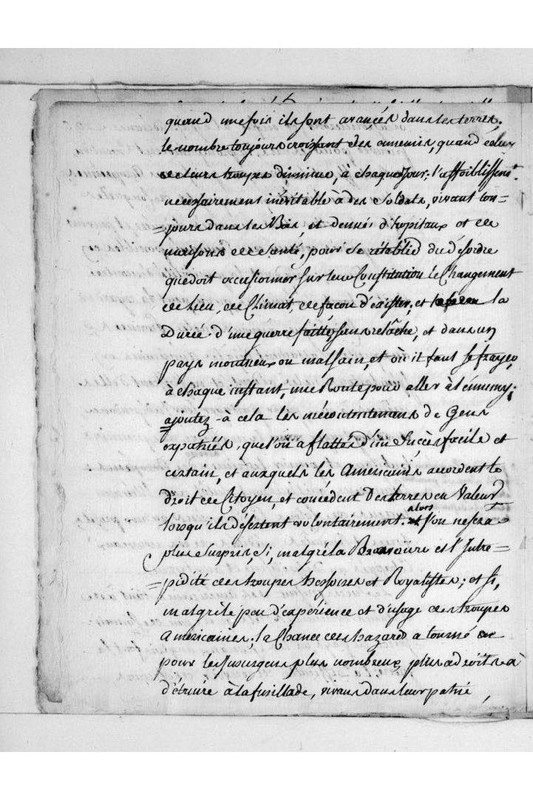 quand une fois ils sont avancés dans les terres,
le nombre toujours croissant des ennemis, quand celui
de leurs troupes diminue, à chaque jour: l'affoiblissemt.
nécessairement inévitable à des Soldats, vivant tou=
=jours dans les Bois, et denués d'hopitaux et de
maisons de santé, pour se rétablir du desordre
que doit occasionner sur leur Constitution le Changement
de lieu, de Climat, de façon d'éxister, et la
Durée d'une guerre faitte sans relâche, et dans un
pays montueux ou malsain, et où il faut se frayer,
à chaque instant, une Route pour aller à l'ennemy;
ajoutez à cela les mécontentemens de Gens
expatriés, que l'on a flattés d'un Succès facile et
certain, et auxquels les Américains accordent le
droit de Citoyen, et concédent Des terres en Valeur
lorsqu'ils désertent volontairement. alors l'on ne sera
plus surpris, si, malgré la Bravoure et l'Intre=
=pidité des troupes hessoises et Royalistes; et si,
malgré le peu d'expérience et d'usage des troupes
américaines, la Chance des hazards a tourné
pour les Insurgens plus nombreux, plus adroits à
détruire à la fusillade, vivans dans leur patrie,